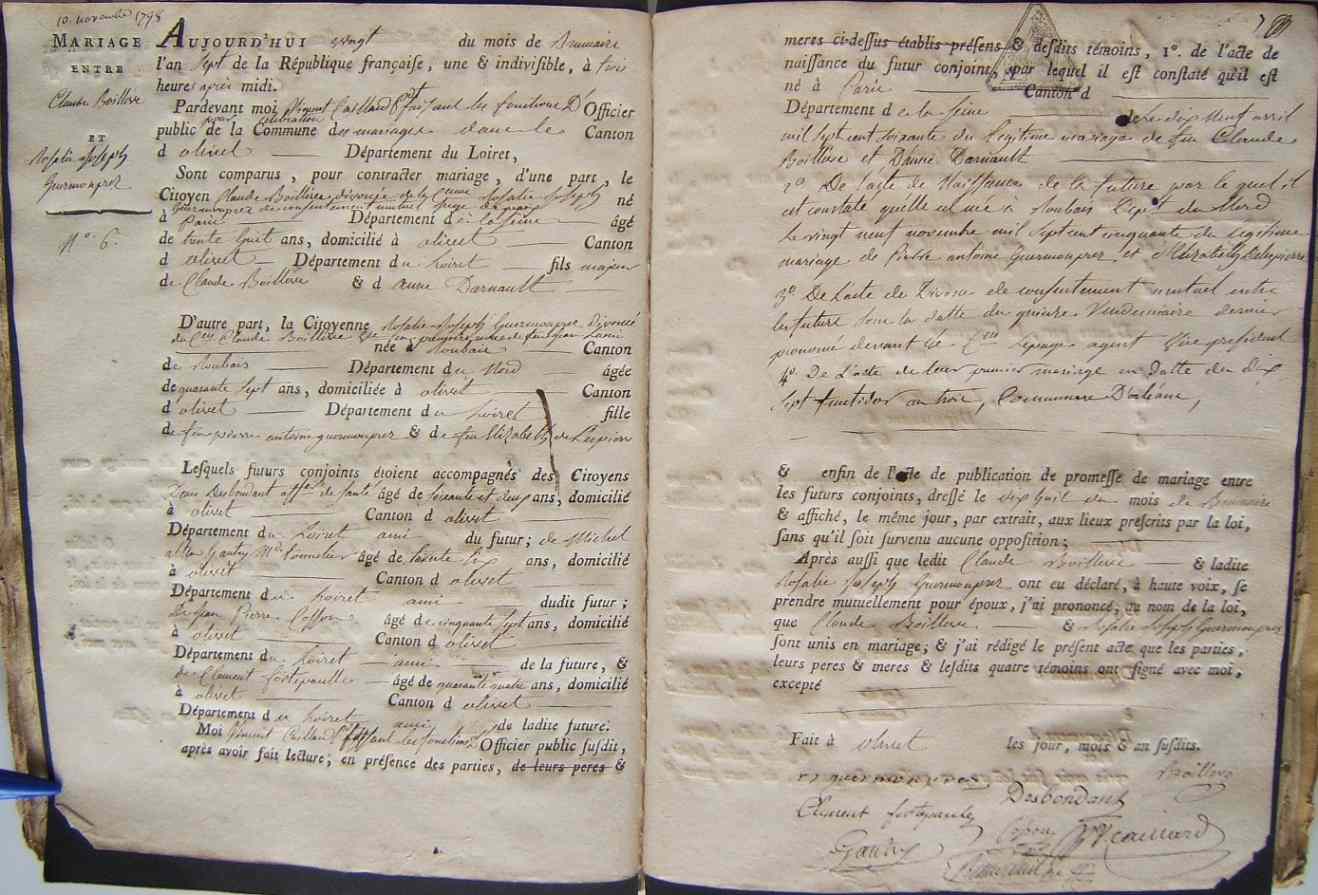 10. novembre 1798
MARIAGE
ENTRE
Claude Boillerie
ET
Rosalie Joseph
Guermonprez
N.º 6.
AUJOURD'HUI vingt du mois de Brumaire
l'an sept de la République française, une & indivisible, à trois
heures après midi.
Pardevant moi Vincent Caillard faisant les fonctions d'Officier
public de la Commune pour célébration des mariages dans le Canton
d olivet Département du Loiret,
Sont comparus, pour contracter mariage, d'une part, le
Citoyen Claude Boillerie divorcé de la Rosalie Joseph
Guermonprez de consentement mutuel né
à Paris Département de la Seine âgé
de trente huit ans, domicilié à olivet Canton
d olivet Département du Loiret fils majeur
de Claude Boillerie & d anne Darnault
D'autre part, la Citoyenne Rosalie Joseph Guermonprez divorcé
du Claude Boillerie
née à Roubaix Canton
de Roubais Département du Nord âgée
de quarante sept ans, domiciliée à olivet Canton
d olivet Département du Loiret fille
de feu pierre antoine guermonprez & de feu Elizabeth
Lesquels futurs conjoints étoient accompagnés des Citoyens
Desbondant off. de santé âgé de soixante et deux ans, domicilié
à olivet Canton d olivet
Département du Loiret ami du futur; de Michel
Gautry âgé de trente six ans, domicilié
à olivet Canton d olivet
Département du Loiret ami dudit futur;
De Jean Pierre âgé de cinquante sept ans, domicilié
à olivet Canton d olivet
Département du Loiret ami de la future, &
de Clement fortepaulle âgé de quarante quatre ans, domicilié
à olivet Canton d olivet
Département du Loiret ami de ladite future.
Moi Vincent Caillard faisant les fonctions Officier public susdit,
après avoir fait lecture, en présence des parties, de leurs peres &
meres ci-dessus établis présens & desdits témoins, 1º. de l'acte de
naissance du futur conjoint, par lequel il est constaté qu'il est
né à Paris Canton d
Département de la Seine le dix neuf avril
mil sept cent soixante du légitime mariage de feu Claude
Boillerie et D'anne Darnault
2º De l'acte de Naissance de la future par le quel il
est constaté quelle est née à Roubais Dépt. du Nord
le vingt neuf novembre mil sept cent cinquante du legitime
mariage de Pierre antoine Guermonprez et
3º De l'acte de Divorce de consentement mutuel entre
les future sous la datte du quinze Vendemiaire dernier
prononcé devant le Cen Lepage agent
4º De L'acte de leur premier mariage en datte du dix
sept fructidor an trois, Commune D'orléans,
& enfin de l'acte de publication de promesse de mariage entre
les futurs conjoints, dressé le dix huit du mois de Brumaire
& affiché, le même jour, par extrait, aux lieux prescrits par la loi,
sans qu'il soit survenu aucune opposition;
Après aussi que ledit Claude Boillerie & ladite
Rosalie Joseph Guermonprez ont eu déclaré, à haute voix, se
prendre mutuellement pour époux, j'ai prononcé, au nom de la loi,
que Claude Boillerie & Rosalie Joseph Guermonprez
sont unis en mariage; & j'ai rédigé le présent acte que les parties,
leurs peres & meres & lesdits quatre témoins ont signé avec moi,
excepté
Fait à olivet les jour, mois & an susdits.
guermonprez Boillerie
Desbondant
Clement fortepaulle
Gautry Caillard